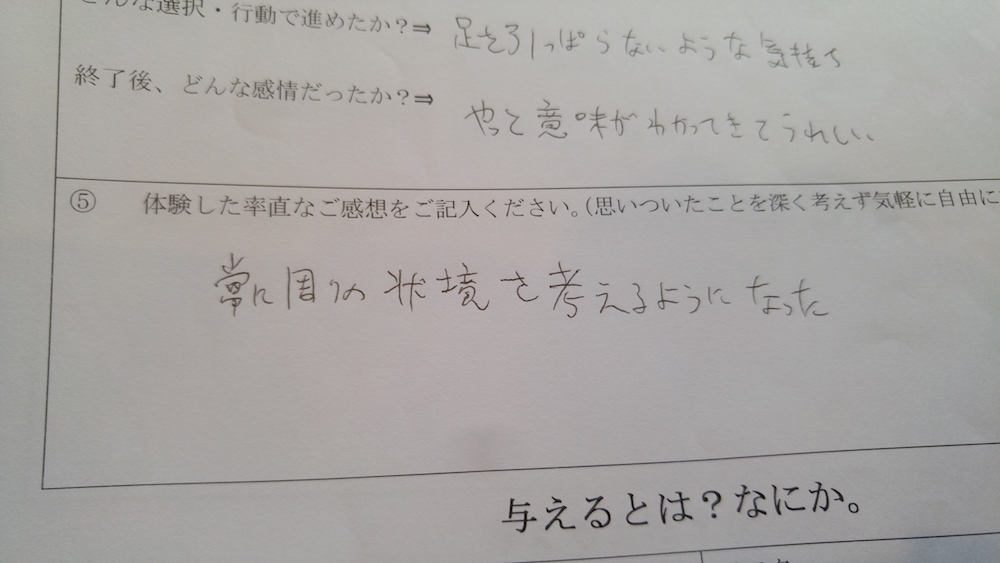 どんな選択・行動で進めたか？⇒ 足を引っぱらないような気持ち
終了後、どんな感情だったか？⇒ やっと意味がわかってきてうれしい、
⑤ 体験した率直なご感想をご記入ください。（思いついたことを深く考えず気軽に自由に
常に周りの状境を考えるようになった
与えるとは？なにか。